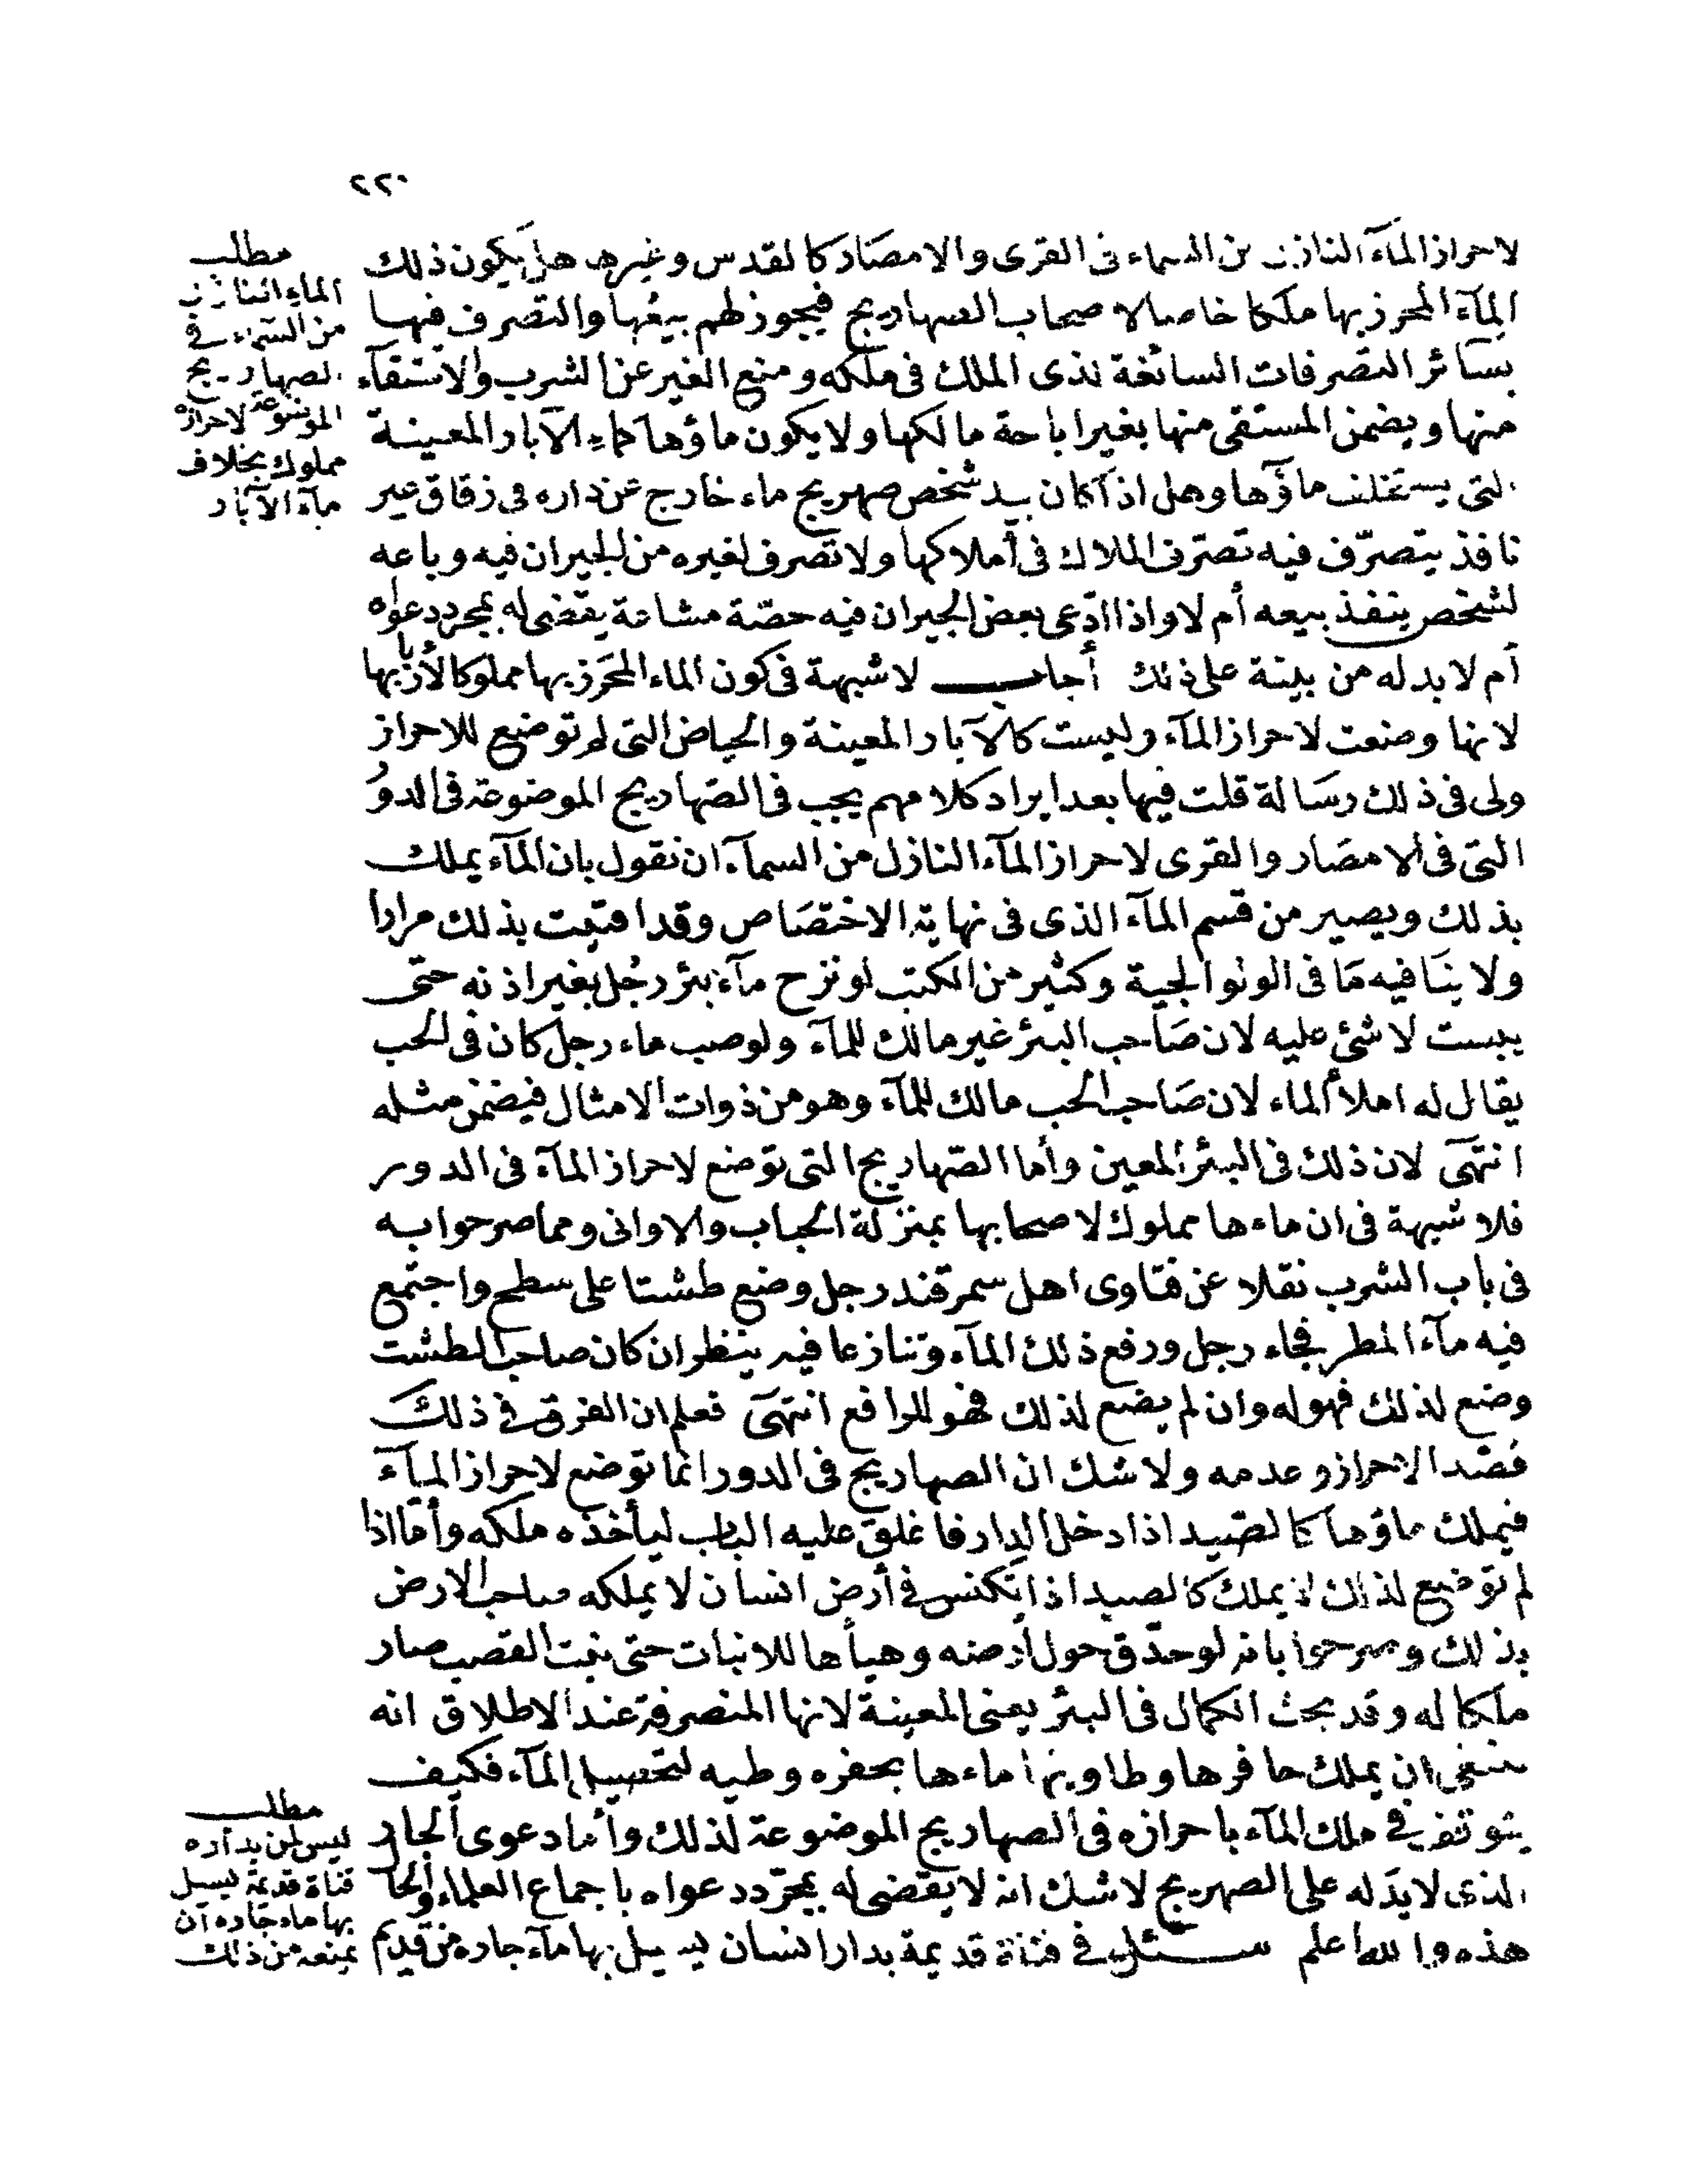 ٢٢٠
لاحراز المآء النازل من السماء فى القرى والامصار كالقدس وغيرها هل يكون ذلك
المآء المحرز بها ملكا خاصا لاصحاب الصهاريج فيجوز لهم بيعها والتصرف فيها
بسائر التصرفات السائغة لذى الملك فى ملكه ومنع الغير عن الشرب والاستقآء
منها ويضمن المستقى منها بغير اباحة مالكها ولا يكون ماؤها كماء الآبار المعينة
التى يستخلف ماؤها وهل اذا كان بيد شخص صهريج ماء خارج عن داره فى زقاق غير
نافذ يتصرّف فيه تصرّف الملاك فى أملاكها ولا تصرف لغيره من الجيران فيه وباعه
لشخص ينفذ بيعه أم لا واذا ادّعى بعض الجيران فيه حصّة مشاعة يقضى له بمجرد دعواه
أم لا بد له من بينة على ذلك أجاب لا شبهة فى كون الماء المحرز بها مملوكا لأربابها
لانها وضعت لاحراز المآء وليست كالآبار المعينة والحياض التى لم توضع للاحراز
ولى فى ذلك رسالة قلت فيها بعد ايراد كلامهم يجب فى الصهاريج الموضوعة فى الدور
التى فى الامصار والقرى لاحراز المآء النازل من السمآء ان نقول بان المآء يملك
بذلك ويصير من قسم المآء الذى فى نهاية الاختصاص وقد افتيت بذلك مرارا
ولا ينافيه ما فى الولوالجية وكثير من الكتب لو نزح مآء بئر رجل بغير اذنه حتى
يبست لا شئ عليه لان صاحب البئر غير مالك للمآء ولو صب ماء رجل كان فى الحب
يقال له املأ الماء لان صاحب الحب مالك للمآء وهو من ذوات الامثال فيضمن مثله
انتهى لان ذلك فى البئر المعين وأما الصهاريج التى توضع لاحراز المآء فى الدور
فلا شبهة فى ان ماءها مملوك لاصحابها بمنزلة الحباب والاوانى ومما صرحوا به
فى باب الشرب نقلا عن فتاوى اهل سمرقند رجل وضع طشتا على سطح واجتمع
فيه مآء المطر فجاء رجل ورفع ذلك المآء وتنازعا فيه ينظر ان كان صاحب الطشت
وضع لذلك فهو له وان لم يضع لذلك فهو للرافع انتهى فعلم ان الفرق فى ذلك
قصد الاحراز وعدمه ولا شك ان الصهاريج فى الدور انما توضع لاحراز المآء
فيملك ماؤها كالصيد اذا دخل الدار فاغلق عليه الباب ليأخذه ملكه وأما اذا
لم توضع لذلك لا يملك كالصيد اذا تكنس فى أرض انسان لا يملكه صاحب الارض
بذلك وصرحوا بانه لو حدّق حول أرضه وهيأها للانبات حتى نبت القصب صار
ملكا له وقد بحث الكمال فى البئر يعنى المعينة لانها المنصرفة عند الاطلاق انه
ينبغى ان يملك حافرها وطاويها ماءها بحفره وطيه لتحصيل المآء فكيف
يتوقف فى ملك المآء باحرازه فى الصهاريج الموضوعة لذلك وأما دعوى الجار
الذى لا يد له على الصهريج لا شك انه لا يقضى له بمجرّد دعواه باجماع العلماء والحال
هذه والله اعلم سئل فى قناة قديمة بدار انسان يسيل بها مآء جاره من قديم
مطلب
الماء النازل
من السمآء فى
الصهاريج
الموضوعة لاحرازه
مملوك بخلاف
مآء الآبار
مطلب
ليس لمن بداره
قناة قديمة يسيل
بها ماء جاره أن
يمنعه من ذلك